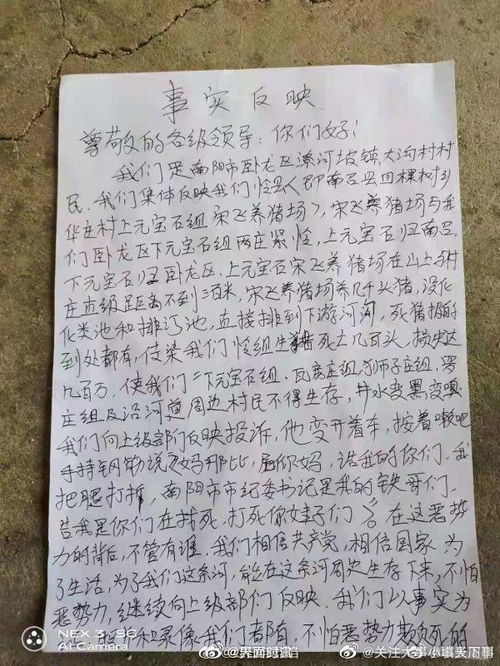 事实反映
尊敬的各级领导：你们好！
我们是南阳市卧龙区潦河坡镇大沟村村
民，我们集体反映我们怪县〈即南召县四棵树乡
华庄村上元宝石组宋飞养猪场〉，宋飞养猪场与我
们卧龙区下元宝石组两庄紧怪，上元宝石归南召，
下元宝石归卧龙区，上元宝石宋飞养猪场在山上与村
庄直线距离不到三百米，宋飞养猪场养几千头猪，没化
化粪池和排污池，直接排到下游河沟，死猪扔的
到处都有，传染我们怪组生猪死亡几百头，损失达
几百万，使我们“下元宝石组、瓦房庄组、狮子庄组、罗
庄组及沿河周边村民不得生存，井水变黑变臭
我们向上级部门反映投诉，他变开着车，按着喇叭
手持钢筋说：妈那比，屌你妈，诺我的你们，我
把腿打折，南阳市市纪委书记是我的铁哥们
告我是你们在找死，打死你娃子们
在这恶势
力的背后，不管有谁，我们相信共产党，相信国家为
了生活，为了我们这条河，能在这条河周边生存下来，不怕
恶势力，继续向上级部门反映。我们以事实为
和录像我们都有，不怕恶势力
NEX 3 5G
AI Camera
@界面时讯
@关注大事小情天下事